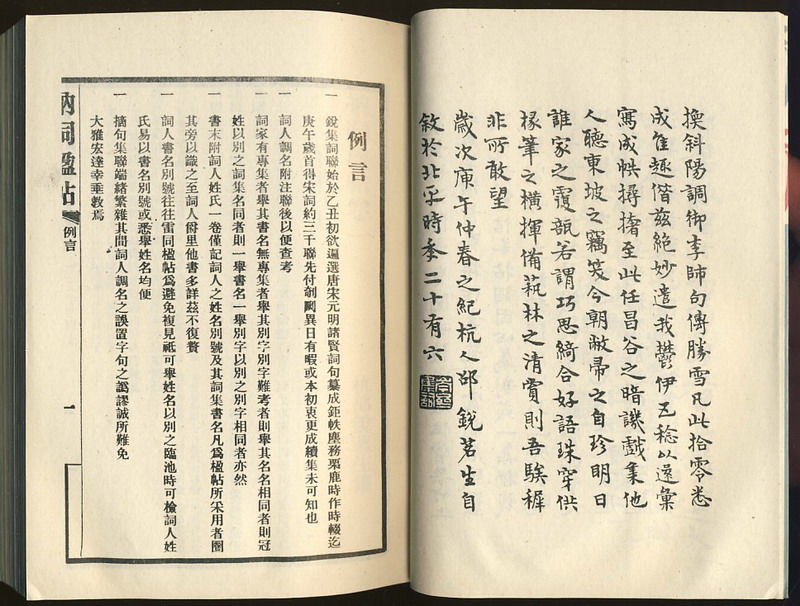 換斜陽調御李師句傳勝雪凡此拾零悉
成隹趣偕茲絕妙遣我鬱伊五稔以還彙
寫成帙撏撦至此任昌谷之暗譏戲集他
人聽東坡之竊笑今朝敝帚之自珍明日
誰家之覆瓿若謂巧思綺合好語珠穿供
椽筆之橫揮備蓺林之清賞則吾騃穉
非所敢望
歲次庚午仲春之紀杭人邵銳茗生自
敘於北平時季二十有六
例言
一 銳集詞聯始於乙丑初欲遍選唐宋元明諸賢詞句纂成鉅帙塵務栗鹿時作時輟迄
庚午歲首得宋詞約三千聯先付剞劂異日有暇或本初衷更成續集未可知也
一 詞人調名附注聯後以便查考
一 詞家有專集者舉其書名無專集者舉其別字別字難考者則舉其名名相同者則冠
姓以別之詞集名同者則一舉書名一舉別字以別之別字相同者亦然
一 書末附詞人姓氏一卷僅記詞人之姓名別號及其詞集書名凡爲楹帖所采用者圈
其旁以識之至詞人爵里他書多詳茲不復贅
一 詞人書名別號往往雷同楹帖爲避免複見祗可舉姓名以別之臨池時可檢詞人姓
氏易以書名別號或悉舉姓名均便
一 摘句集聯端緖繁雜其間詞人調名之誤置字句之譌謬誠所難免
大雅宏達幸垂教焉
衲詞楹帖
例言
一